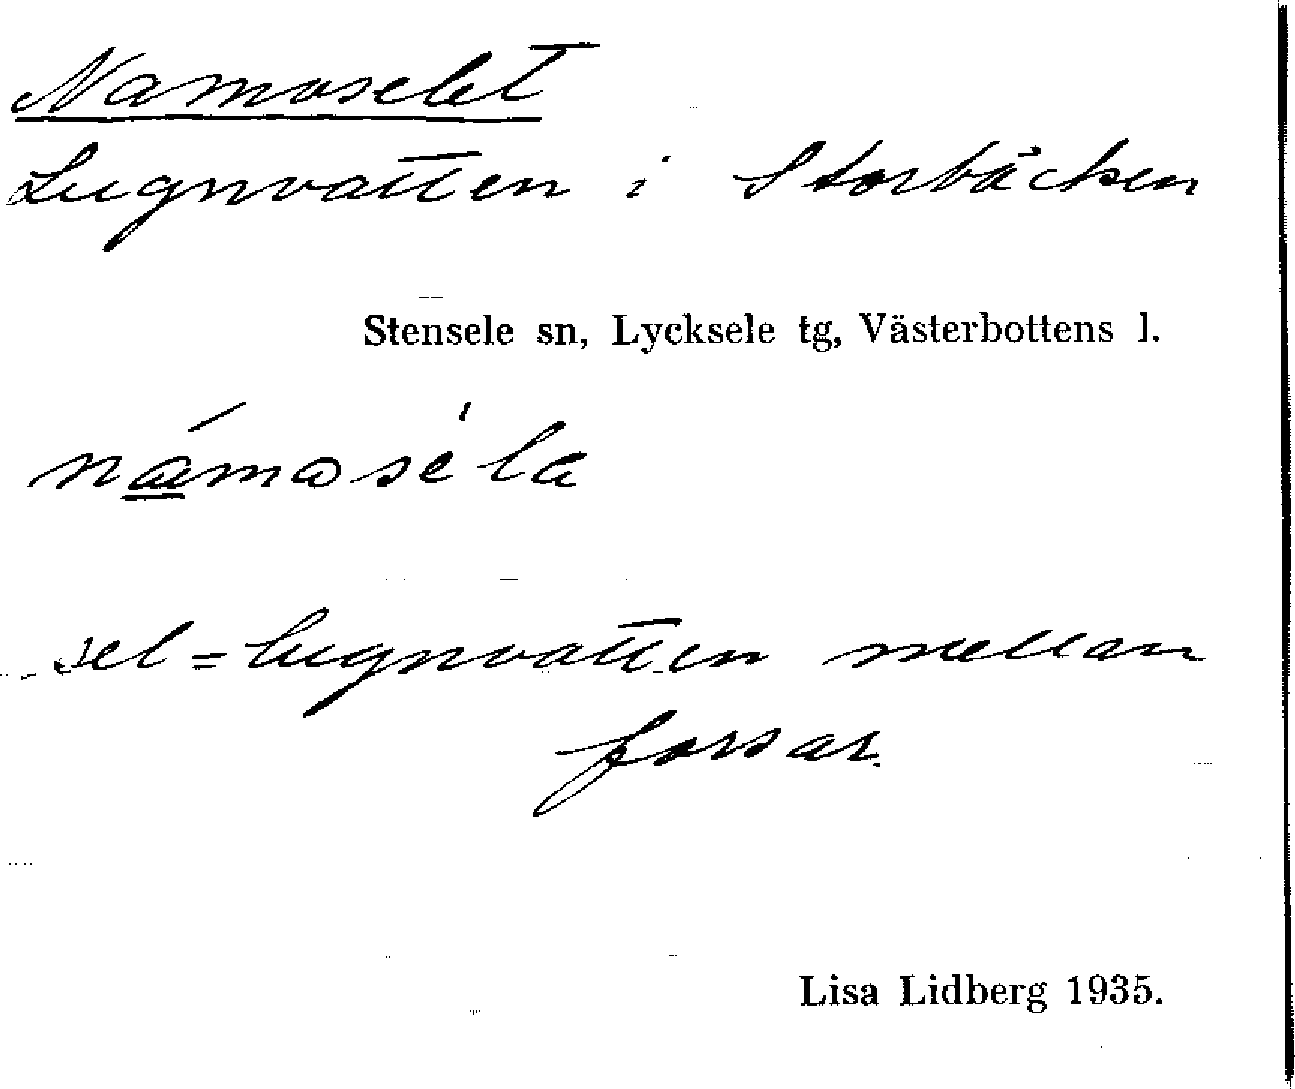 Namoselet
Lugnvatten i Storbäcken
Stensele sn, Lycksele tg, Västerbottens l.
námosèla
sel = lugnvatten mellan
forsar.
Lisa Lidberg 1935.